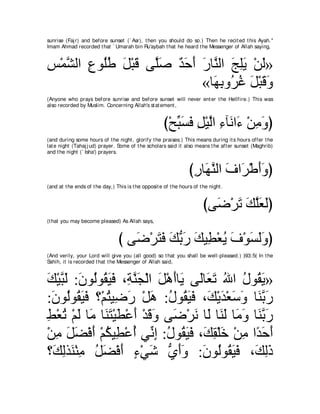 sunrise (Fajr) and before sunset (`Asr), then you should do so.) Then he recited this Ayah.''
Imam Ahmad recorded that `Umarah bin Ru'aybah that he heard the Messenger of Allah saying,
«لَنْ يَلِجَ النَّارَ أَحَدٌ صَلَّى قَبْلَ طُلُوعِ الشَّمْسِ
وَقَبْلَ غُرُوبِهَا»
(Anyone who prays before sunrise and before sunset will never enter the Hellfire.) This was
also recorded by Muslim. Concerning Allah's statement,
(وَمِنْ ءَانَآءِ الَّيْلِ فَسَبِّحْ)
(and during some hours of the night, glorify the praises.) This means during its hours offer the
late night (Tahajjud) prayer. Some of the scholars said it also means the after sunset (Maghrib)
and the night (`Isha') prayers.
(وَأَطْرَافَ النَّهَارِ)
(and at the ends of the day,) This is the opposite of the hours of the night.
(لَعَلَّكَ تَرْضَى)
(that you may become pleased) As Allah says,
(وَلَسَوْفَ يُعْطِيكَ رَبُّكَ فَتَرْضَى )
(And verily, your Lord will give you (all good) so that you shall be well-pleased.) (93:5) In the
Sahih, it is recorded that the Messenger of Allah said,
«يَقُولُ اللهُ تَعَالَى يَاأَهْلَ الْجَنَّةِ، فَيَقُولُونَ: لَبَّيْكَ
رَبَّنَا وَسَعْدَيْكَ، فَيَقُولُ: هَلْ رَضِيتُمْ؟ فَيَقُولُونَ:
رَبَّنَا وَمَا لَنَا لَا نَرْضَى وَقَدْ أَعْطَيْتَنَا مَا لَمْ تُعْطِ
أَحَدًا مِنْ خَلْقِكَ، فَيَقُولُ: إِنِّي أُعْطِيكُمْ أَفْضَلَ مِنْ
ذَلِكَ، فَيَقُولُونَ: وَأَيُّ شَيْءٍ أَفْضَلُ مِنْ ذَلِكَ؟